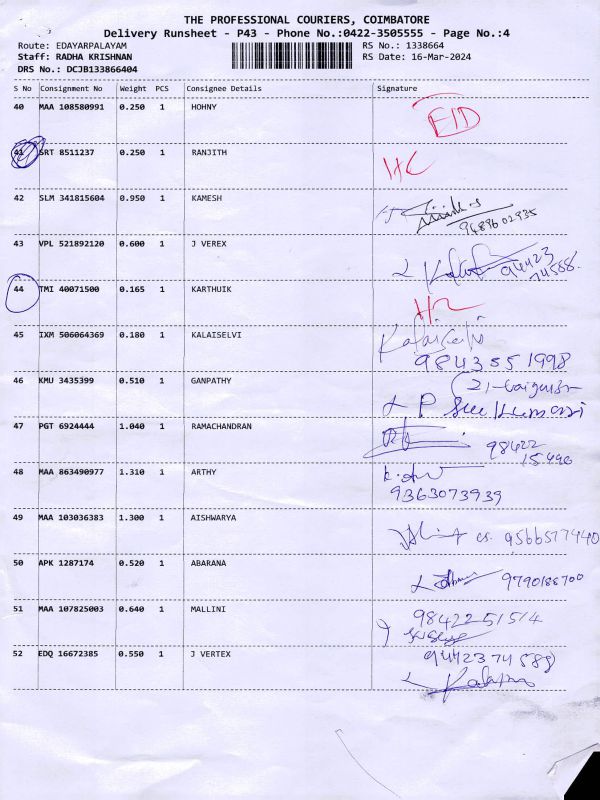 THE PROFESSIONAL COURIERS, COIMBATORE
Delivery Runsheet - P43 - Phone No.:0422-3505555 - Page No.:4
Route: EDAYARPALAYAM RS No.: 1338664
Staff: RADHA KRISHNAN RS Date: 16-Mar-2024
DRS No.: DCJB133866404
S No Consignment No Weight PCS Consignee Details Signature
40 MAA 108580991 0.250 1 HOHNY
41 SRT 8511237 0.250 1 RANJITH
42 SLM 341815604 0.950 1 KAMESH
9489602935
43 VPL 521892120 0.600 1 J VEREX
94423
74588.
44 TMI 40071500 0.165 1 KARTHUIK
45 IXM 506064369 0.180 1 KALAISELVI Kalaiselvi
9843551998
46 KMU 3435399 0.510 1 GANPATHY
47 PGT 6924444 1.040 1 RAMACHANDRAN
98422
15490
48 MAA 863490977 1.310 1 ARTHY
9363073939
49 MAA 103036383 1.300 1 AISHWARYA 9566577440
50 APK 1287174 0.520 1 ABARANA 9790186700
51 MAA 107825003 0.640 1 MALLINI 9842251514
52 EDQ 16672385 0.550 1 J VERTEX 9442374588